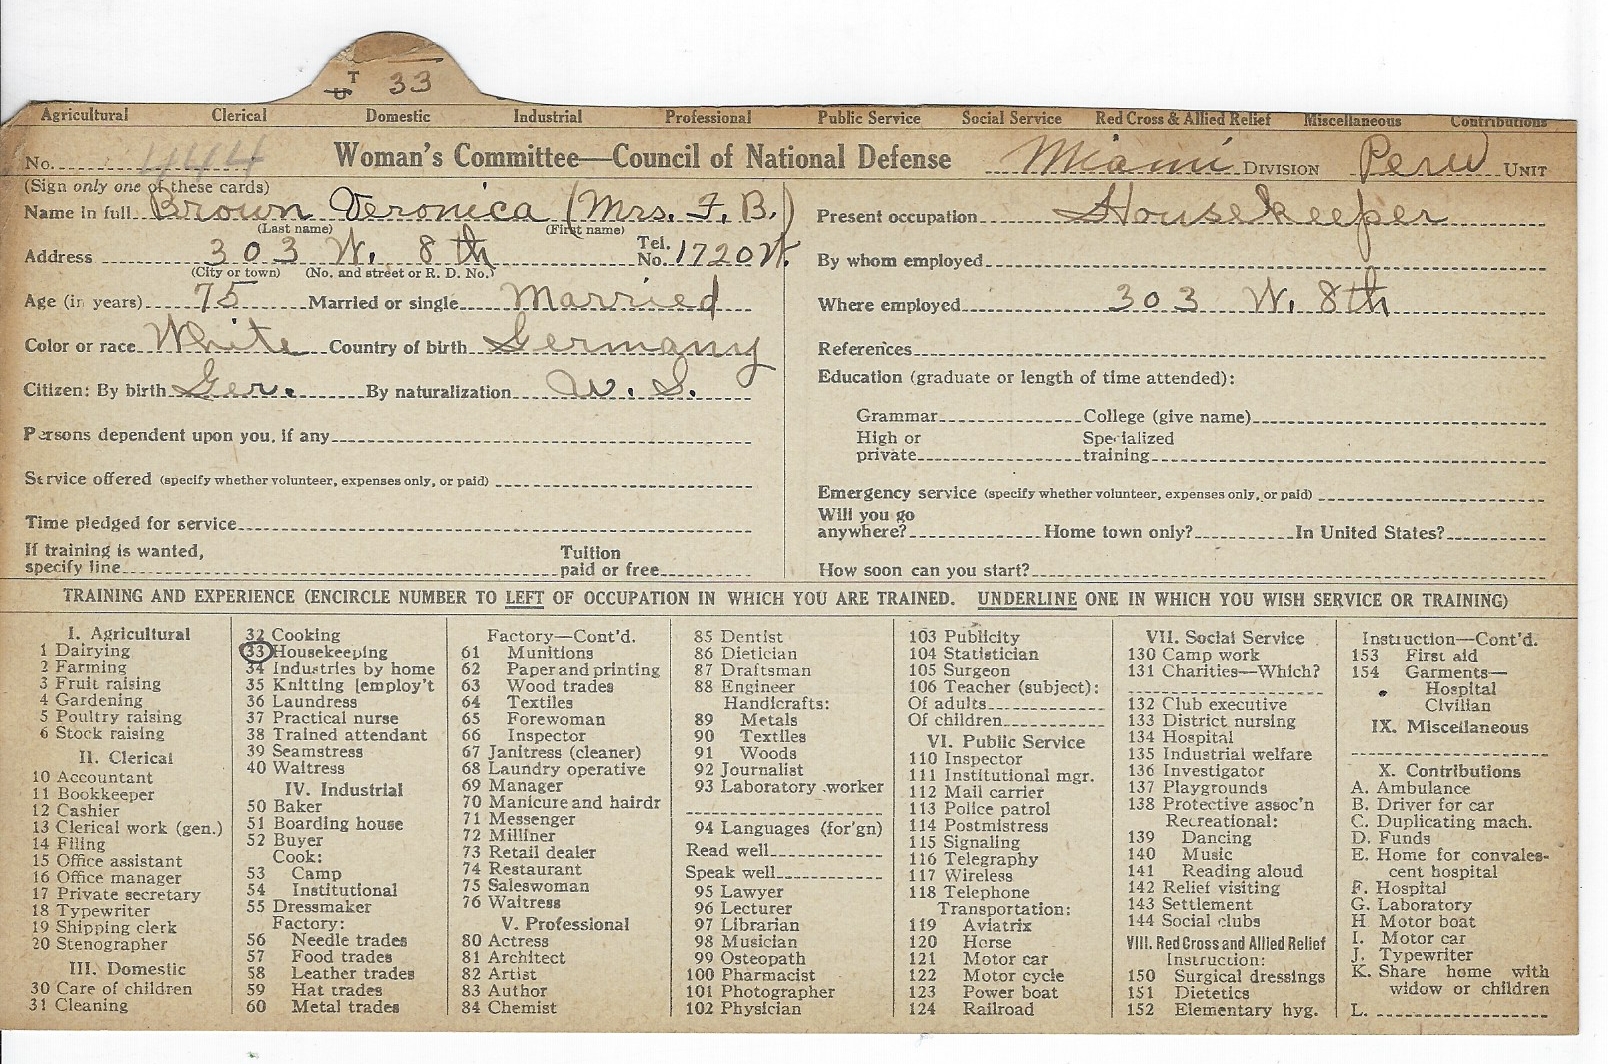 T
U 33
Agricultural Clerical Domestic Industrial Professional Public Service Social Service Red Cross & Allied Relief Miscellaneous Contributions
No. 444 Woman's Committee—Council of National Defense Miami DIVISION Peru UNIT
(Sign only one of these cards)
Name in full Brown Veronica (Mrs. F. B.)
(Last name) (First name)
Address 303 W. 8th Tel. No. 1720 W.
(City or town) (No. and street or R. D. No.)
Age (in years) 75 Married or single Married
Color or race White Country of birth Germany
Citizen: By birth Ger. By naturalization U. S.
Persons dependent upon you, if any
Service offered (specify whether volunteer, expenses only, or paid)
Time pledged for service
If training is wanted,
specify line Tuition paid or free
Present occupation Housekeeper
By whom employed
Where employed 303 W. 8th
References
Education (graduate or length of time attended):
Grammar College (give name)
High or private Specialized training
Emergency service (specify whether volunteer, expenses only, or paid)
Will you go
anywhere? Home town only? In United States?
How soon can you start?
TRAINING AND EXPERIENCE (ENCIRCLE NUMBER TO LEFT OF OCCUPATION IN WHICH YOU ARE TRAINED. UNDERLINE ONE IN WHICH YOU WISH SERVICE OR TRAINING)
I. Agricultural
1 Dairying
2 Farming
3 Fruit raising
4 Gardening
5 Poultry raising
6 Stock raising
II. Clerical
10 Accountant
11 Bookkeeper
12 Cashier
13 Clerical work (gen.)
14 Filing
15 Office assistant
16 Office manager
17 Private secretary
18 Typewriter
19 Shipping clerk
20 Stenographer
III. Domestic
30 Care of children
31 Cleaning
32 Cooking
33 Housekeeping
34 Industries by home
35 Knitting [employ't
36 Laundress
37 Practical nurse
38 Trained attendant
39 Seamstress
40 Waitress
IV. Industrial
50 Baker
51 Boarding house
52 Buyer
Cook:
53 Camp
54 Institutional
55 Dressmaker
Factory:
56 Needle trades
57 Food trades
58 Leather trades
59 Hat trades
60 Metal trades
Factory—Cont'd.
61 Munitions
62 Paper and printing
63 Wood trades
64 Textiles
65 Forewoman
66 Inspector
67 Janitress (cleaner)
68 Laundry operative
69 Manager
70 Manicure and hairdr
71 Messenger
72 Milliner
73 Retail dealer
74 Restaurant
75 Saleswoman
76 Waitress
V. Professional
80 Actress
81 Architect
82 Artist
83 Author
84 Chemist
85 Dentist
86 Dietician
87 Draftsman
88 Engineer
Handicrafts:
89 Metals
90 Textiles
91 Woods
92 Journalist
93 Laboratory worker
94 Languages (for'gn)
Read well
Speak well
95 Lawyer
96 Lecturer
97 Librarian
98 Musician
99 Osteopath
100 Pharmacist
101 Photographer
102 Physician
103 Publicity
104 Statistician
105 Surgeon
106 Teacher (subject):
Of adults
Of children
VI. Public Service
110 Inspector
111 Institutional mgr.
112 Mail carrier
113 Police patrol
114 Postmistress
115 Signaling
116 Telegraphy
117 Wireless
118 Telephone
Transportation:
119 Aviatrix
120 Horse
121 Motor car
122 Motor cycle
123 Power boat
124 Railroad
VII. Social Service
130 Camp work
131 Charities—Which?
132 Club executive
133 District nursing
134 Hospital
135 Industrial welfare
136 Investigator
137 Playgrounds
138 Protective assoc'n
Recreational:
139 Dancing
140 Music
141 Reading aloud
142 Relief visiting
143 Settlement
144 Social clubs
VIII. Red Cross and Allied Relief
Instruction:
150 Surgical dressings
151 Dietetics
152 Elementary hyg.
Instruction—Cont'd.
153 First aid
154 Garments—
Hospital
Civilian
IX. Miscellaneous
X. Contributions
A. Ambulance
B. Driver for car
C. Duplicating mach.
D. Funds
E. Home for convales-
cent hospital
F. Hospital
G. Laboratory
H. Motor boat
I. Motor car
J. Typewriter
K. Share home with
widow or children
L.